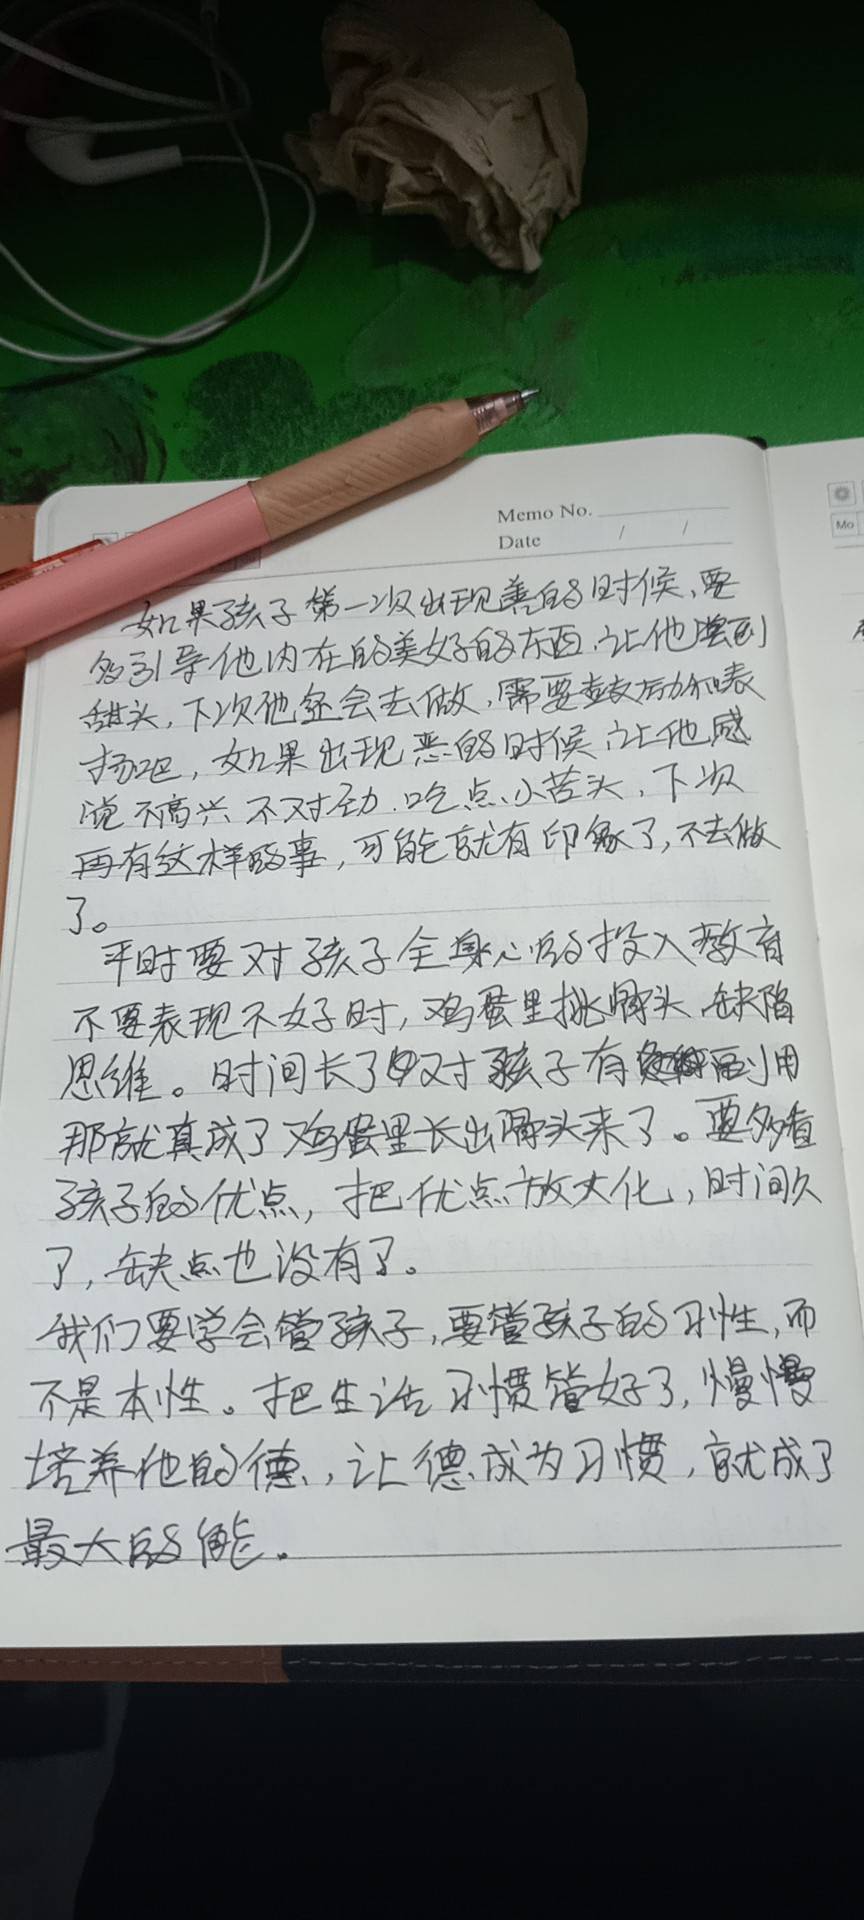 Memo No.
Date / /
Mo
如果孩子第一次出现善的时候、要
多引导他内在的美好的东西.让他尝到
甜头,下次他还会去做,需要鼓励和表
扬吧,如果出现恶的时候.让他感
觉不高兴不对劲.吃点小苦头,下次
再有这样的事,可能就有印象了,不去做
了。
平时要对孩子全身心的投入教育
不要表现不好时,鸡蛋里挑骨头.缺陷
思维。时间长了 对孩子有 副 用
那就真成了鸡蛋里长出骨头来了。要多看
孩子的优点,把优点放大化,时间久
了,缺点也没有了。
我们要学会管孩子,要管孩子的习性,而
不是本性。把生活习惯管好了,慢慢
培养他的德,让德成为习惯,就成了
最大的能。